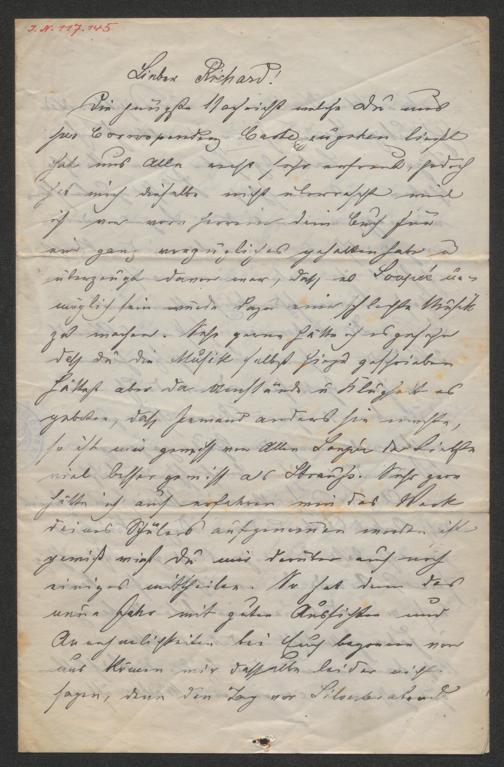 J. N. 117.145
Lieber Richard!
Die jüngste Nachricht welche Du uns
per Correspondenz Carte zugehen ließt
hat uns Alle recht sehr erfreut, jedoch
hat mich dieselbe nicht überrascht weil
ich von vorn herein dein Buch für
ein ganz vorzügliches gehalten habe u
überzeugt davon war, daß es Souppé un-
möglich sein würde dazu eine schlechte Musik
zu machen. Sehr gerne hätte ich es gesehen
daß du die Musik selbst hiezu geschrieben
hättest aber da Umstände u Klugheit es
geboten, daß Jemand anders sie machte,
so ist mir gewiß von Allen Souppé der Liebste
viel besser gewiß als Strauss. Sehr gern
hätte ich auch erfahren wie das Werk
deines Schülers aufgenommen worden ist
gewiß wirst Du mir darüber auch noch
einiges mittheilen. So hat denn das
neue Jahr mit guten Aussichten und
Annehmlichkeiten bei Euch begonnen von
uns können wir dasselbe leider nicht
sagen, denn den Tag vor Silvesterabend